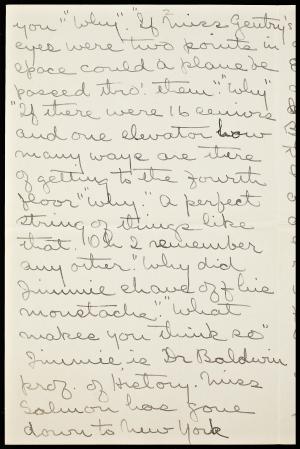 you" "Why". "If Miss Gentry's
eyes were two points in
space could a plane be
passed thro' them". "Why"
"If there were 16 seniors
and one elevator how
many ways are there
of getting to the fourth
floor" "Why." A perfect
string of things like
that. "Oh I remember
any other". "Why did
Jimmie shave off his
moustache". "What
makes you think so"
Jimmie is Dr Baldwin
prof. of History. Miss
Salmon has gone
down to New York